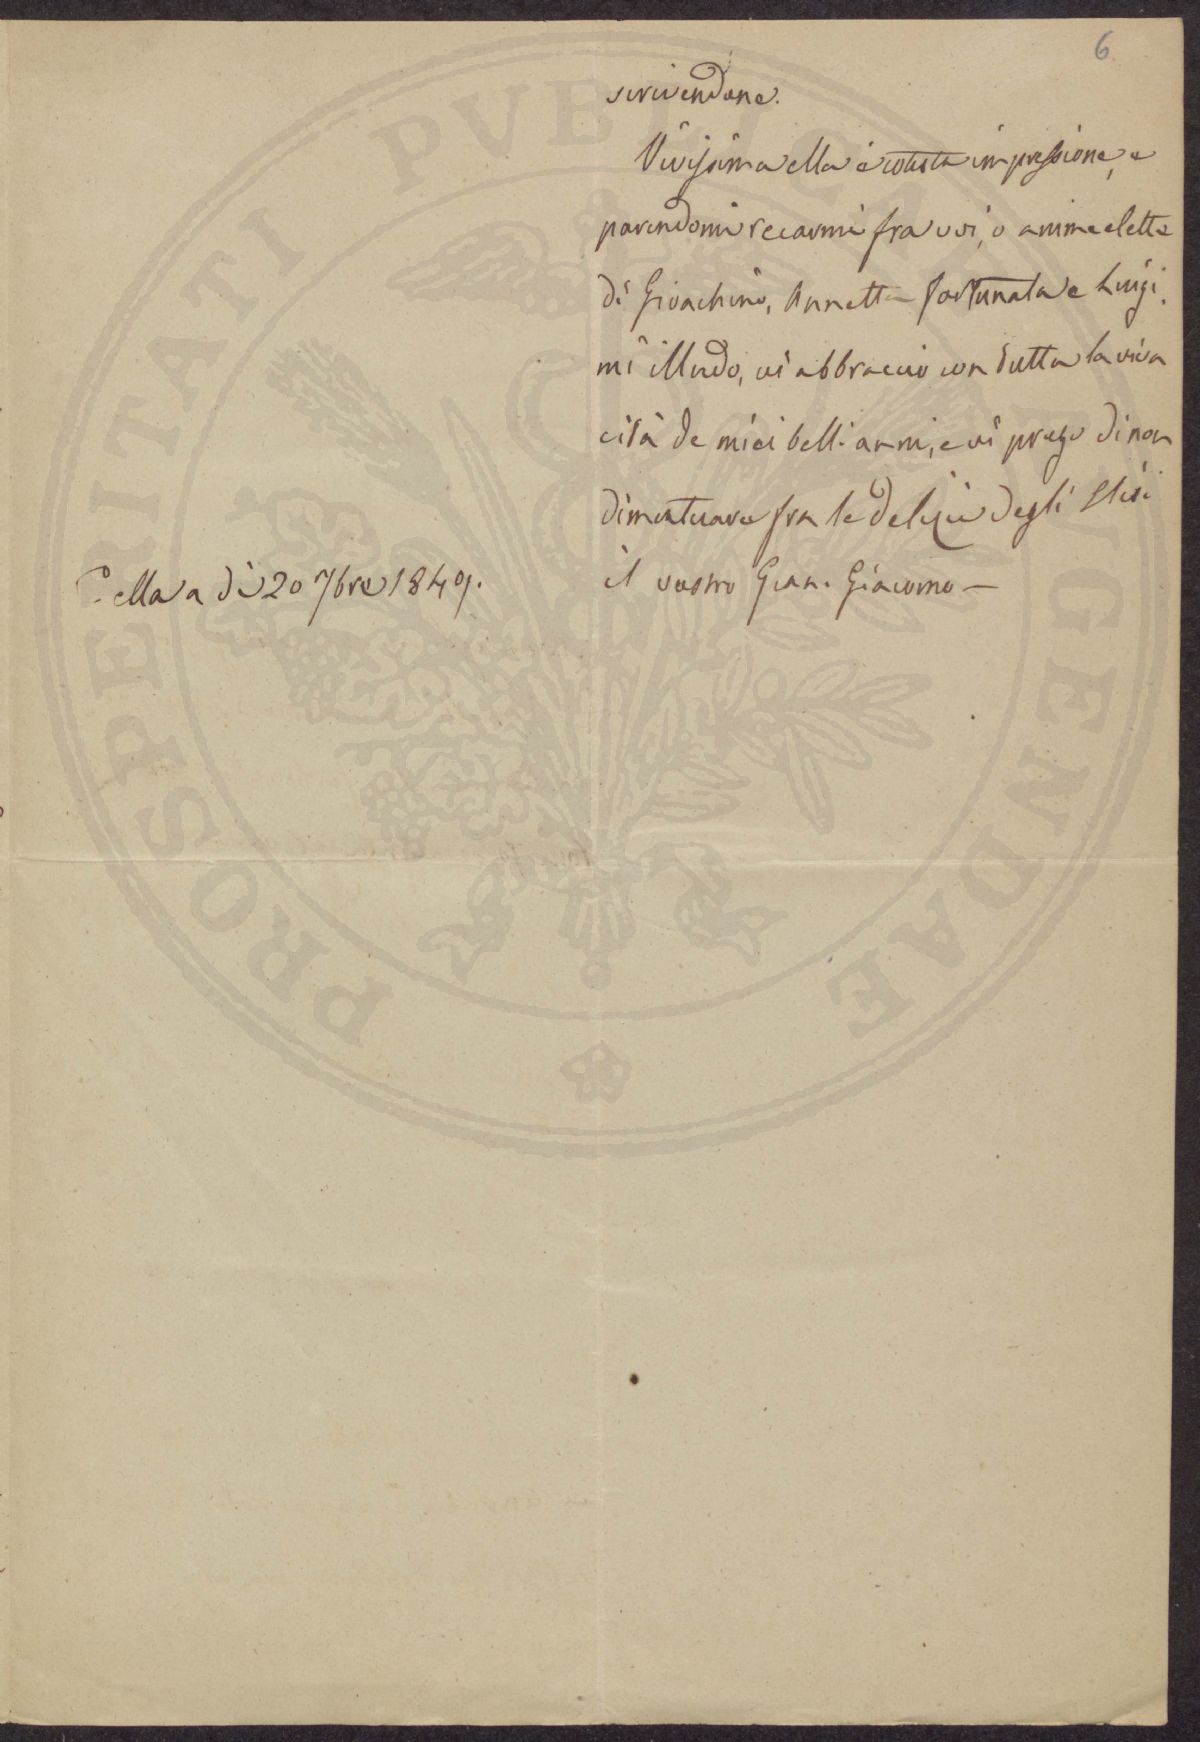 6
scrivendone.
Vivissima ella è cotesta impressione, e
parendomi recarmi fra voi, o anime elette
di Gioachino, Annetta Fortunata e Luigi.
mi illudo, vi abbraccio con tutta la viva
cità de miei belli anni, e vi prego di non
dimenticare fra le delizie degli Elisi
il vostro Gian. Giacomo —
a di 20 7bre 1849.
PROSPERITATI PVBLICAE AVGENDAE